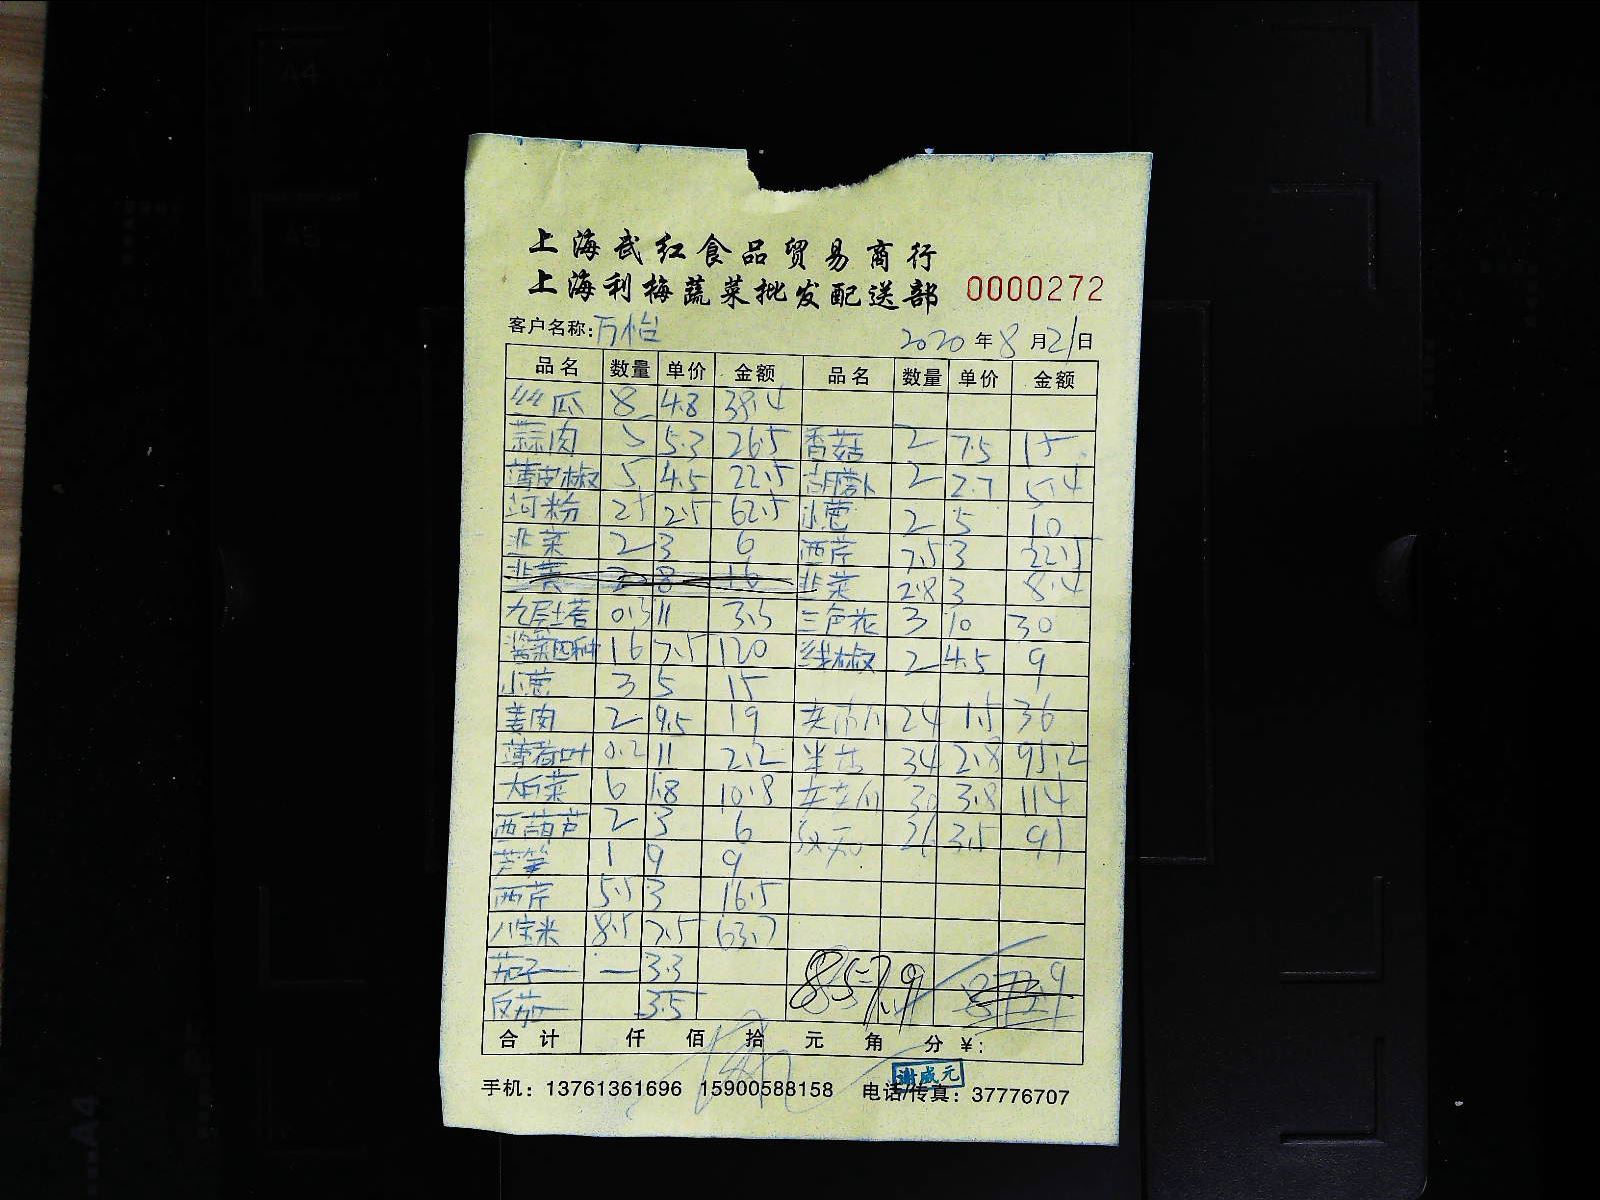 上海武红食品贸易商行
上海利梅蔬菜批发配送部 0000272
客户名称:万怡 2020年8月21日
品名 数量 单价 金额 品名 数量 单价 金额
丝瓜 8 4.8 38.4
蒜肉 5 5.3 26.5 香菇 2 7.5 15
薄皮椒 5 4.5 22.5 胡萝卜 2 2.7 5.4
河粉 25 2.5 62.5 小葱 2 5 10
韭菜 2 3 6 西芹 7.5 3 22.5
韭黄 2 8 16 韭菜 2.8 3 8.4
九层塔 0.3 11 3.3 三色花 3 10 30
酱菜四种 16 7.5 120 线椒 2 4.5 9
小葱 3 5 15
姜肉 2 9.5 19 24 1.5 36
薄荷叶 0.2 11 2.2 34 2.8 95.2
大白菜 6 1.8 10.8 30 3.8 114
西葫芦 2 3 6 26 3.5 91
芦笋 1 9 9
西芹 5.5 3 16.5
八宝米 8.5 7.5 63.7
茄子 — 3.3
3.5 857.9 873.9
合计 仟 佰 拾 元 角 分 ¥:
谢成元
手机: 13761361696 15900588158 电话/传真: 37776707